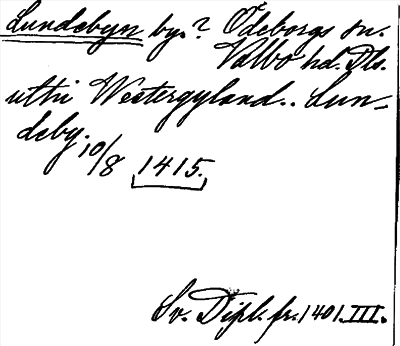 Lundebyn by? Ödeborgs sn.
Valbo hd. Dls.
uthi Westergyland.. Lun-
deby.
10/8 1415.
Sv. Dipl. fr. 1401. III.